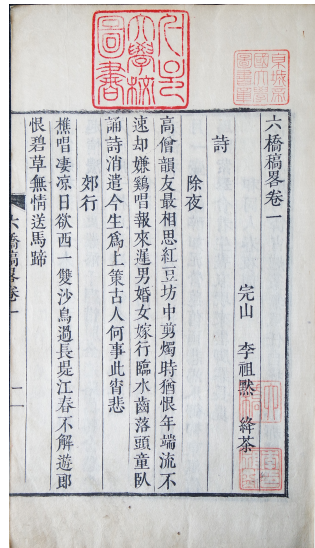 서울
大學校
圖書
京城帝
國大學
圖書章
六橋稿畧卷一
完山 李祖黙 絳茶
詩
除夜
高僧韻友最相思紅豆坊中剪燭時猶恨年端流不
速却嫌鷄唱報來遲男婚女嫁行臨水齒落頭童臥
誦詩消遣今生爲上策古人何事此宵悲
郊行
樵唱凄凉日欲西一雙沙鳥過長堤江春不解遊郎
恨碧草無情送馬蹄
六橋稿畧卷一